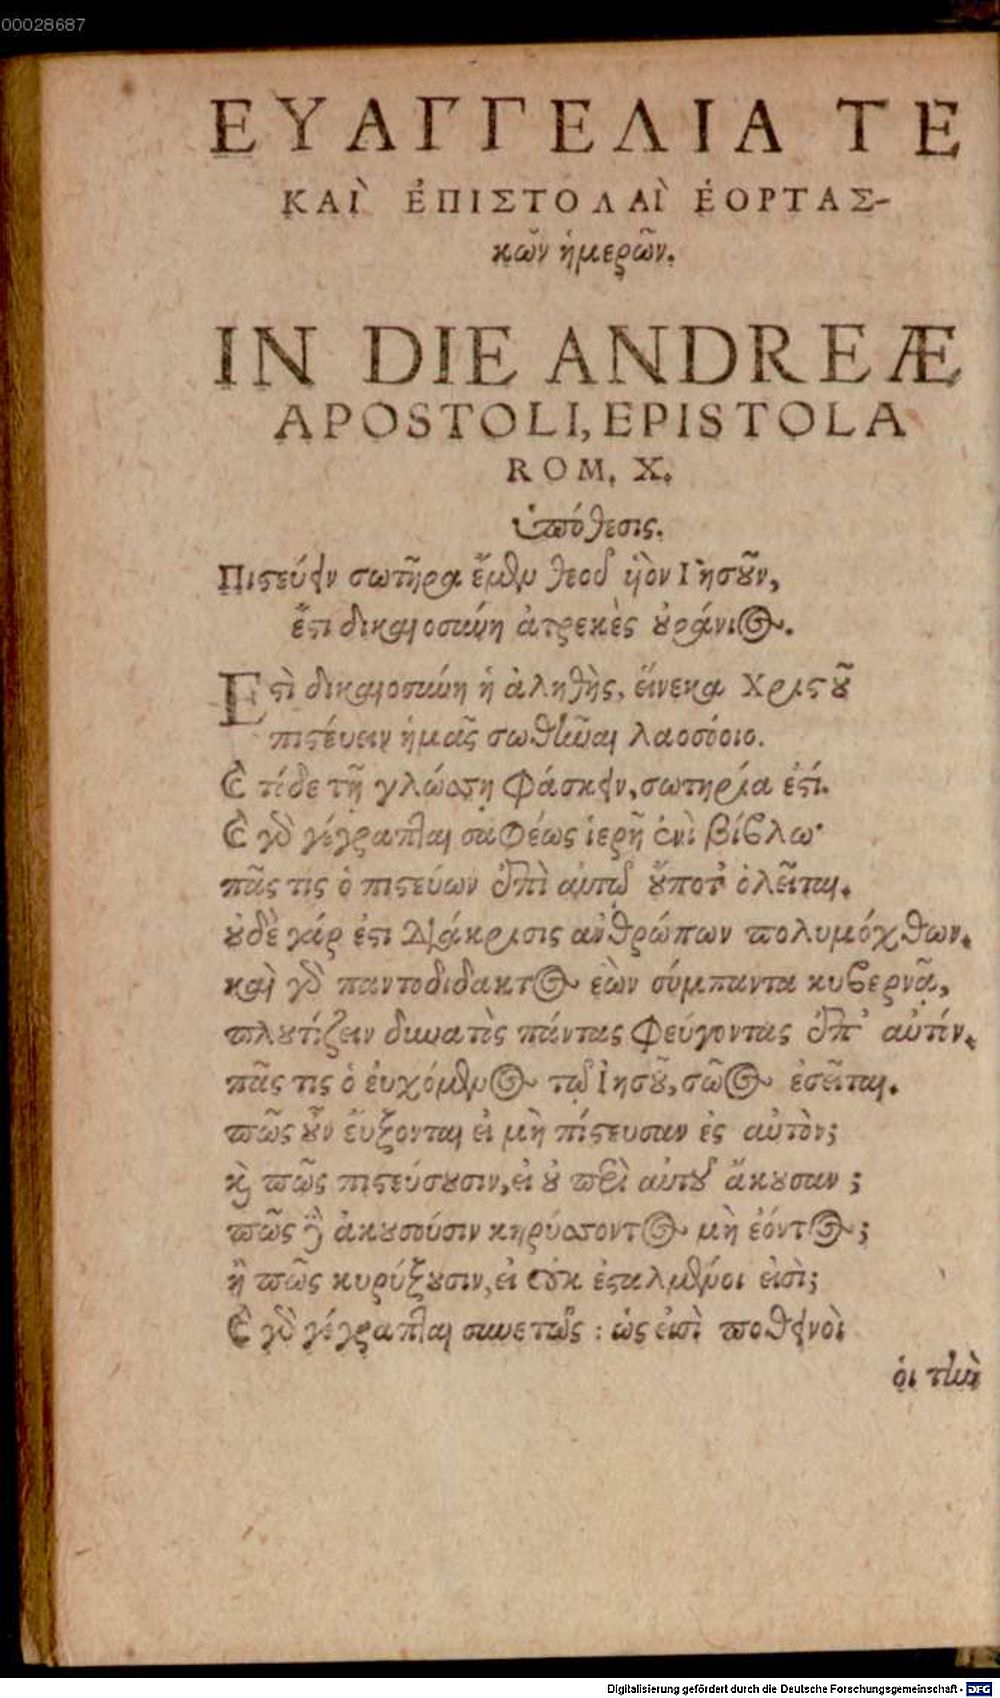 00028687
ΕΥΑΓΓΕΛΙΑ ΤΕ
ΚΑῚ ἘΠΙΣΤΟΛΑῚ ἙΟΡΤΑΣ-
κῶν ἡμερῶν.
IN DIE ANDREÆ
APOSTOLI, EPISTOLA
ROM. X.
ὑπόθεσις.
Πιςεύειν σωτῆρα ἔμθμ θεοῦ ὑὸν Ἰησοῦν,
ἔςι δικαιοσύνη ἀτρεκὲς οὐράνιος.
Εςὶ δικαιοσύνη ἡ ἀληθὴς, εἵνεκα Χριςοῦ
πιςέυειν ἡμᾶς σωθῆναι λαοσόοιο.
Ε τίδε τῇ γλώσσῃ φάσκειν, σωτηρία ἐςί.
Ε γὸ γέγραπται σαφέως ἱερῇ ἐνὶ βίβλω·
πᾶς τις ὁ πιςεύων ἐπὶ αὐτῷ οὔποτ' ὀλεῖται.
οὐδὲ γάρ ἐςι διάκρισις ἀνθρώπων πολυμόχθων.
καὶ γὸ παντοδίδακτος ἐὼν σύμπαντα κυβερνᾷ,
πλουτίζειν δυνατὸς πάντας φεύγοντας ἐπ' αὐτίν.
πᾶς τις ὁ ἐυχόμενος τῷ Ἰησοῦ, σῶος ἐσεῖται.
πῶς οὖν ἔυξονται εἰ μὴ πίςευσαν ἐς αὐτὸν;
καὶ πῶς πιςεύσουσιν, εἰ οὐ περὶ αὐτοῦ ἄκουσαν;
πῶς δὲ ἀκουσούσιν κηρύσσοντος μὴ ἐόντος;
ἢ πῶς κυρύξουσιν, εἰ οὐκ ἐςαλμένοι εἰσὶ;
Ε γὸ γέγραπται συνετῶς : ὡς εἰσὶ ποθεινοὶ
οἱ τὴν
Digitalisierung gefördert durch die Deutsche Forschungsgemeinschaft - DFG